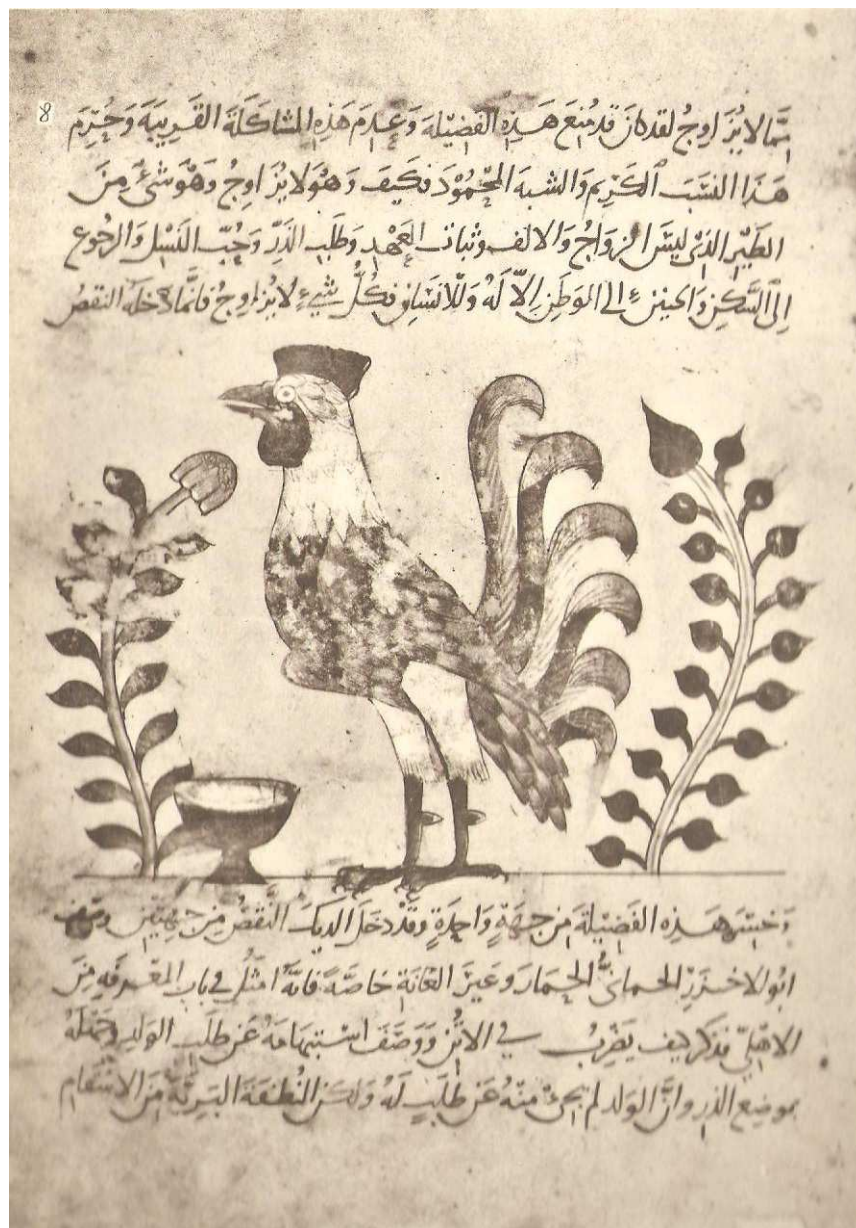 8
مما لا يزاوج لقد كان قد منع هذه الفضيلة وعدم هذه المشاكلة القريبة وحرم
هذا النسب الكريم والشبه المحمود فكيف وهو لا يزاوج وهو شيء من
الطير الذي ليس الزواج والالف وثبات العهد وطلب الذر وحب النسل والرجوع
إلى السكن والحنين إلى الوطن إلا له وللانسان فكل شيء لا يزاوج فانما دخله النقص
وخسر هذه الفضيلة من جهة واحدة وقد دخل الديك النقص من جهتين ووصف
ابو الاخزر الحماني الحمار وعير العانة خاصة فانه امثل في باب المعرفة من
الاهلي فذكر كيف يضرب في الاتن ووصف استبهامه عن طلب الولد وجهله
بموضع الذرو وان الولد لم يجئ منه عن طلب له ولكن النطفة البرية من الاسقام